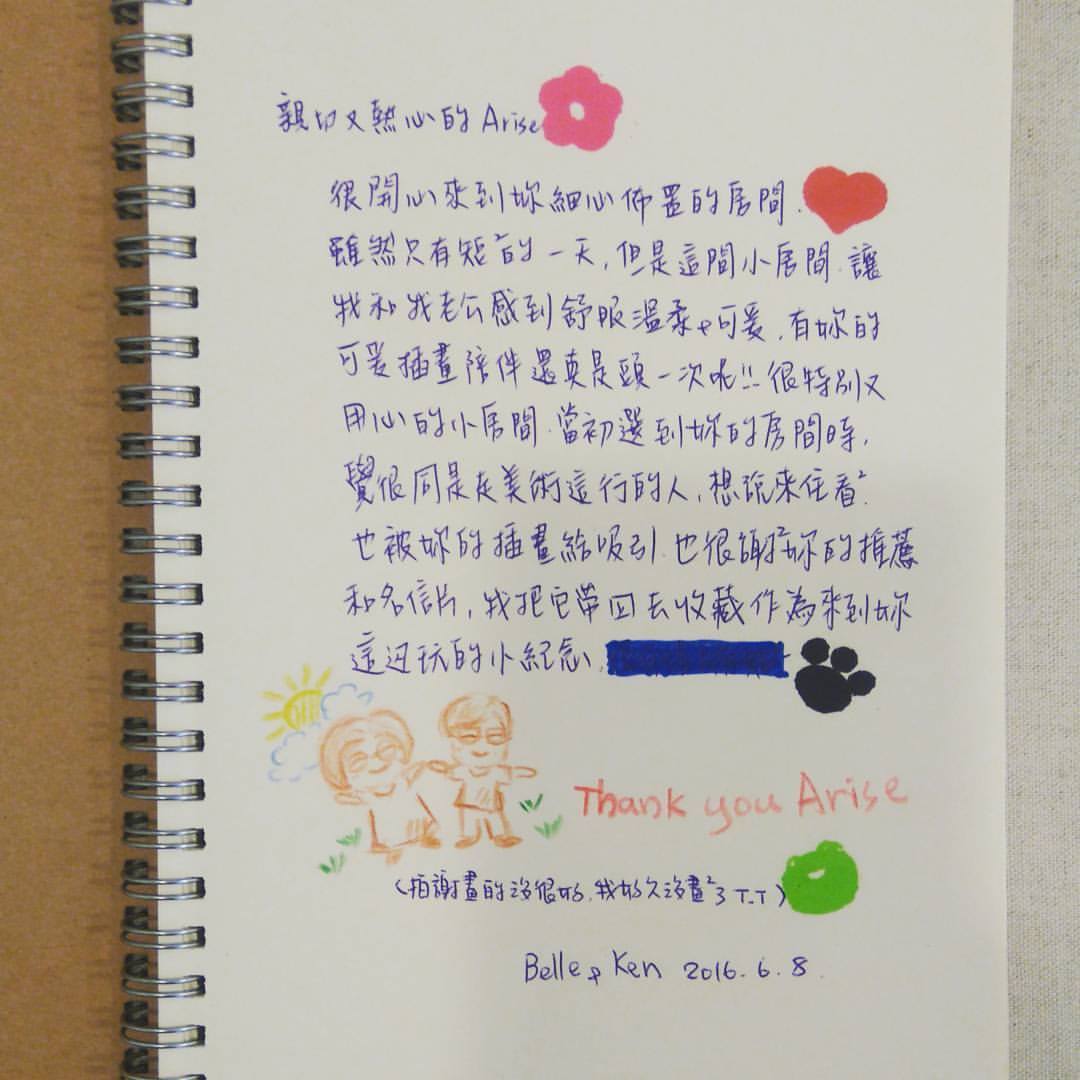 親切又熱心的 Arise
很開心來到妳細心佈置的房間.
雖然只有短²的一天,但是這間小房間.讓
我和我老公感到舒服溫柔&可愛,有妳的
可愛插畫陪伴還真是頭一次呢!!很特別又
用心的小房間.當初選到妳的房間時,
覺很同是在美術這行的人,想說來住看².
也被妳的插畫給吸引.也很謝²妳的推薦
和名信片,我把它帶回去收藏作為來到妳
這边玩的小紀念.
Thank you Arise
(拍謝畫的沒很好,我好久沒畫²了 T_T)
Belle & Ken 2016. 6. 8.